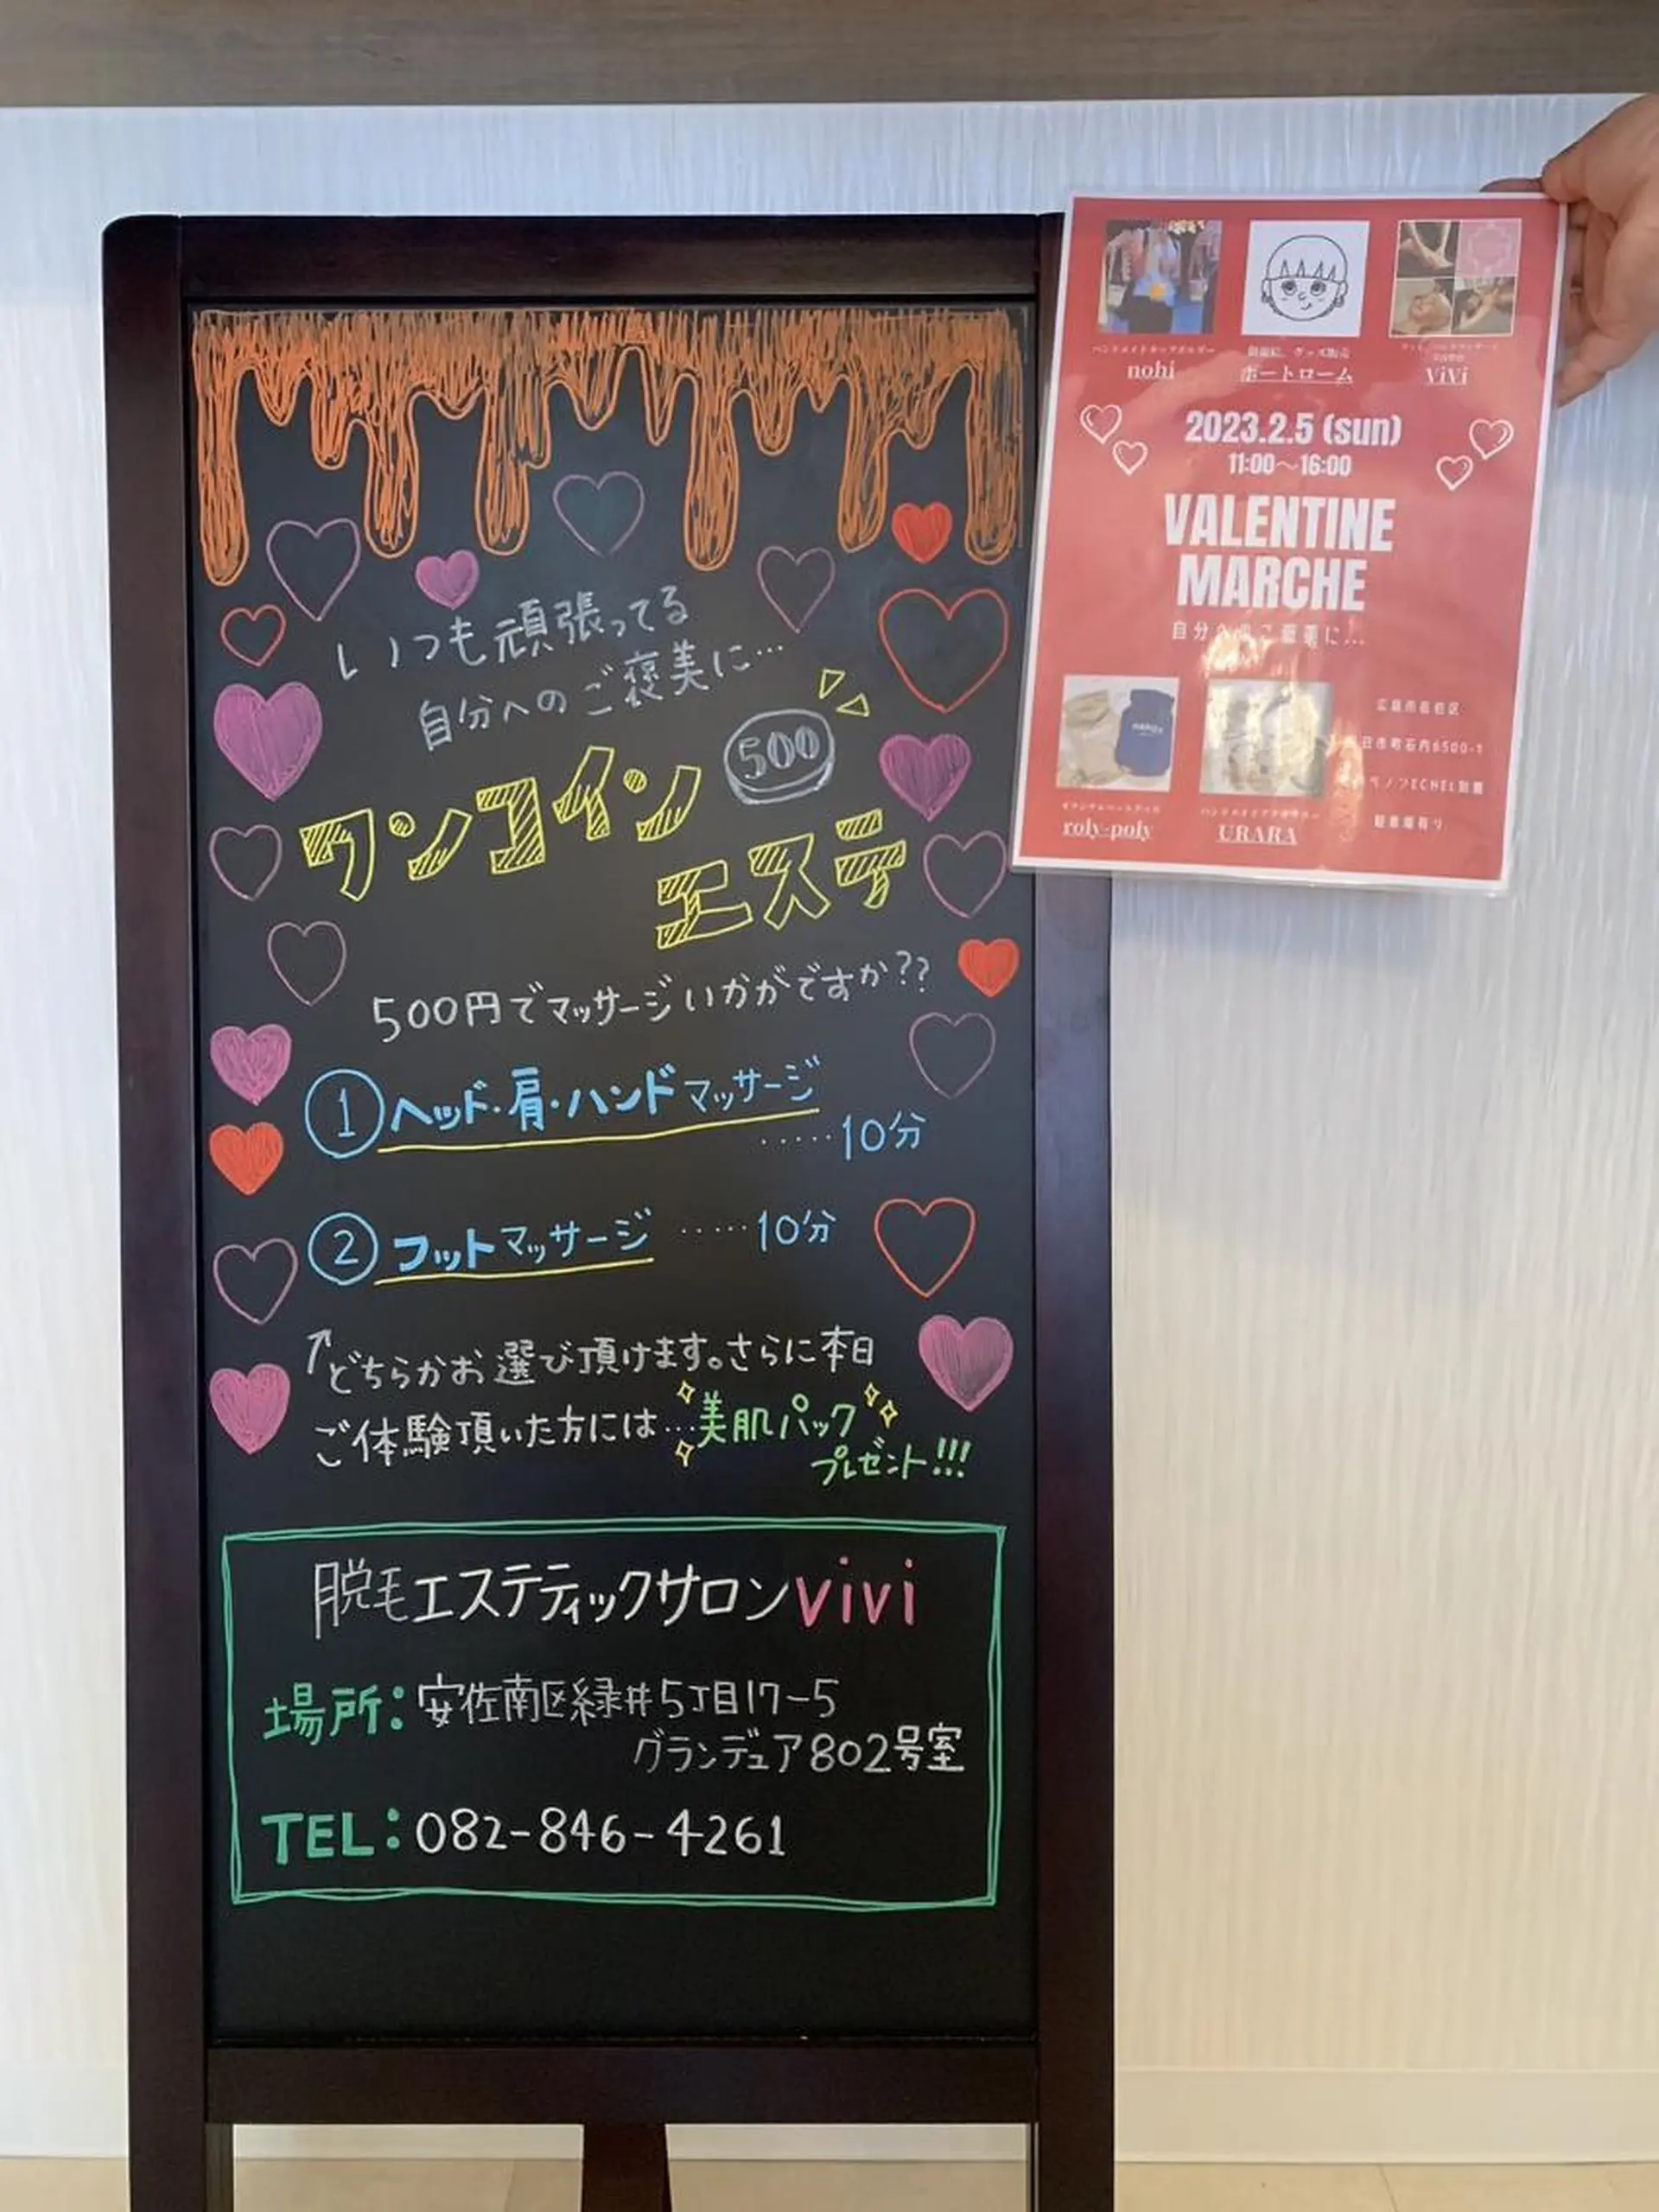 いつも頑張ってる
自分へのご褒美に…
500
ワンコイン
エステ
500円でマッサージいかがですか??
① ヘッド・肩・ハンドマッサージ
……10分
② フットマッサージ ……10分
↑どちらかお選び頂けます。さらに本日
ご体験頂いた方には…美肌パック
プレゼント!!!
脱毛エステティックサロンvivi
場所:安佐南区緑井5丁目17-5
グランデュア802号室
TEL:082-846-4261
nohi
ポートローム
ViVi
2023.2.5 (sun)
11:00～16:00
VALENTINE
MARCHE
自分へのご褒美に...
広島市佐伯区
日市町石内6500-1
駐車場有り
roly-poly
URARA